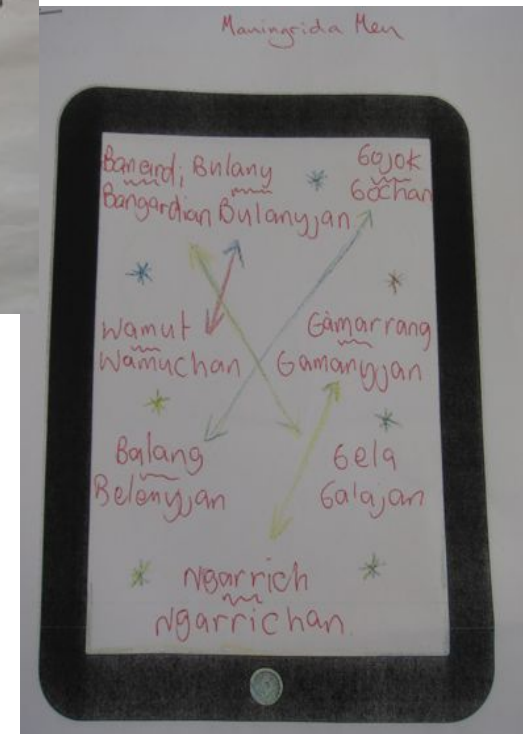 Maningrida Men
Bangardi Bulany
Bangardian Bulanyjan
Gojok
Gochan
Wamut
Wamuchan
Gamarrang
Gamanyjan
Balang
Belenyjan
Gela
Galajan
Ngarrich
Ngarrichan.